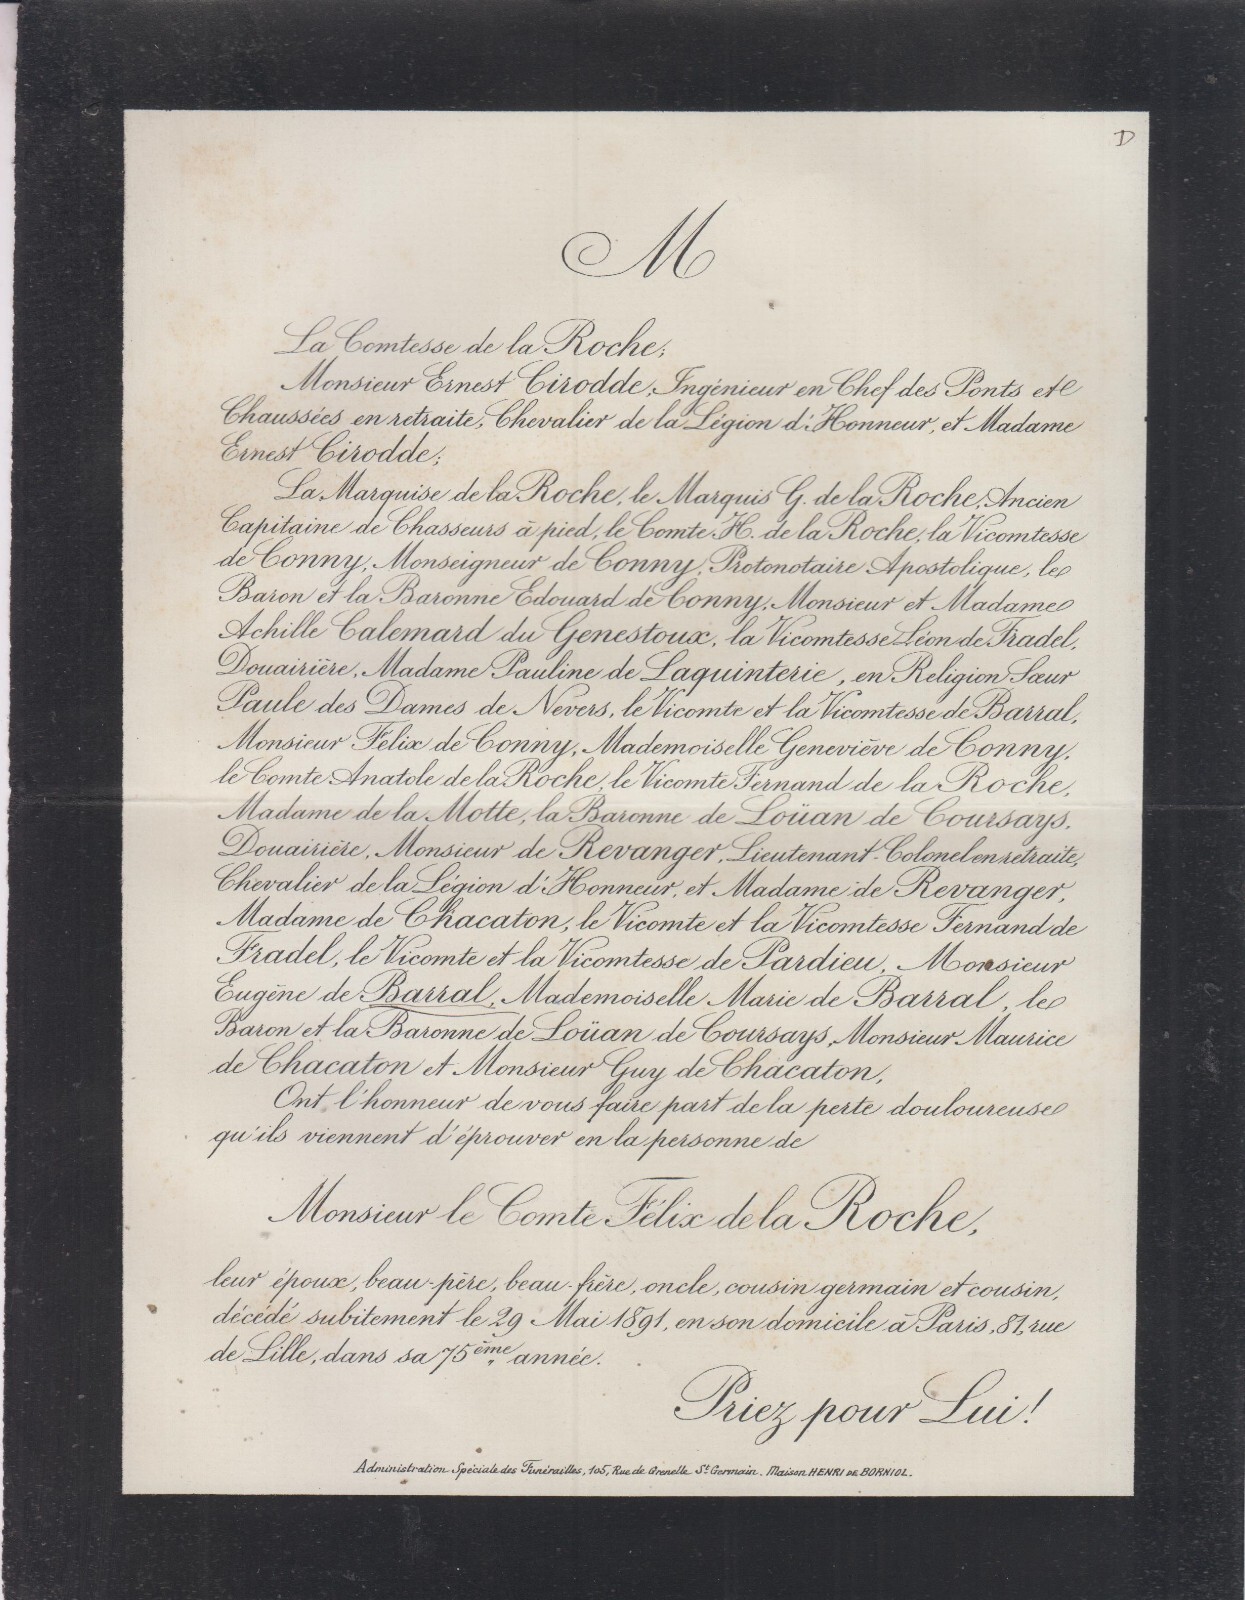 D
M
La Comtesse de la Roche;
Monsieur Ernest Cirodde, Ingénieur en Chef des Ponts et
Chaussées en retraite, Chevalier de la Légion d'Honneur, et Madame
Ernest Cirodde;
La Marquise de la Roche, le Marquis G. de la Roche, Ancien
Capitaine de Chasseurs à pied, le Comte H. de la Roche, la Vicomtesse
de Conny, Monseigneur de Conny, Protonotaire Apostolique, le
Baron et la Baronne Edouard de Conny, Monsieur et Madame
Achille Calemard du Genestoux, la Vicomtesse Léon de Fradel,
Douairière, Madame Pauline de Laquinterie, en Religion Sœur
Paule des Dames de Nevers, le Vicomte et la Vicomtesse de Barral,
Monsieur Félix de Conny, Mademoiselle Geneviève de Conny,
le Comte Anatole de la Roche, le Vicomte Fernand de la Roche,
Madame de la Motte, la Baronne de Loüan de Coursays,
Douairière, Monsieur de Revanger, Lieutenant-Colonel en retraite,
Chevalier de la Légion d'Honneur, et Madame de Revanger,
Madame de Chacaton, le Vicomte et la Vicomtesse Fernand de
Fradel, le Vicomte et la Vicomtesse de Pardieu, Monsieur
Eugène de Barral, Mademoiselle Marie de Barral, le
Baron et la Baronne de Loüan de Coursays, Monsieur Maurice
de Chacaton et Monsieur Guy de Chacaton,
Ont l'honneur de vous faire part de la perte douloureuse
qu'ils viennent d'éprouver en la personne de
Monsieur le Comte Félix de la Roche,
leur époux, beau-père, beau-frère, oncle, cousin germain et cousin,
décédé subitement le 29 Mai 1891, en son domicile à Paris, 81, rue
de Lille, dans sa 75ème année.
Priez pour Lui!
Administration Spéciale des Funérailles, 105, Rue de Grenelle St Germain. Maison HENRI DE BORNIOL.